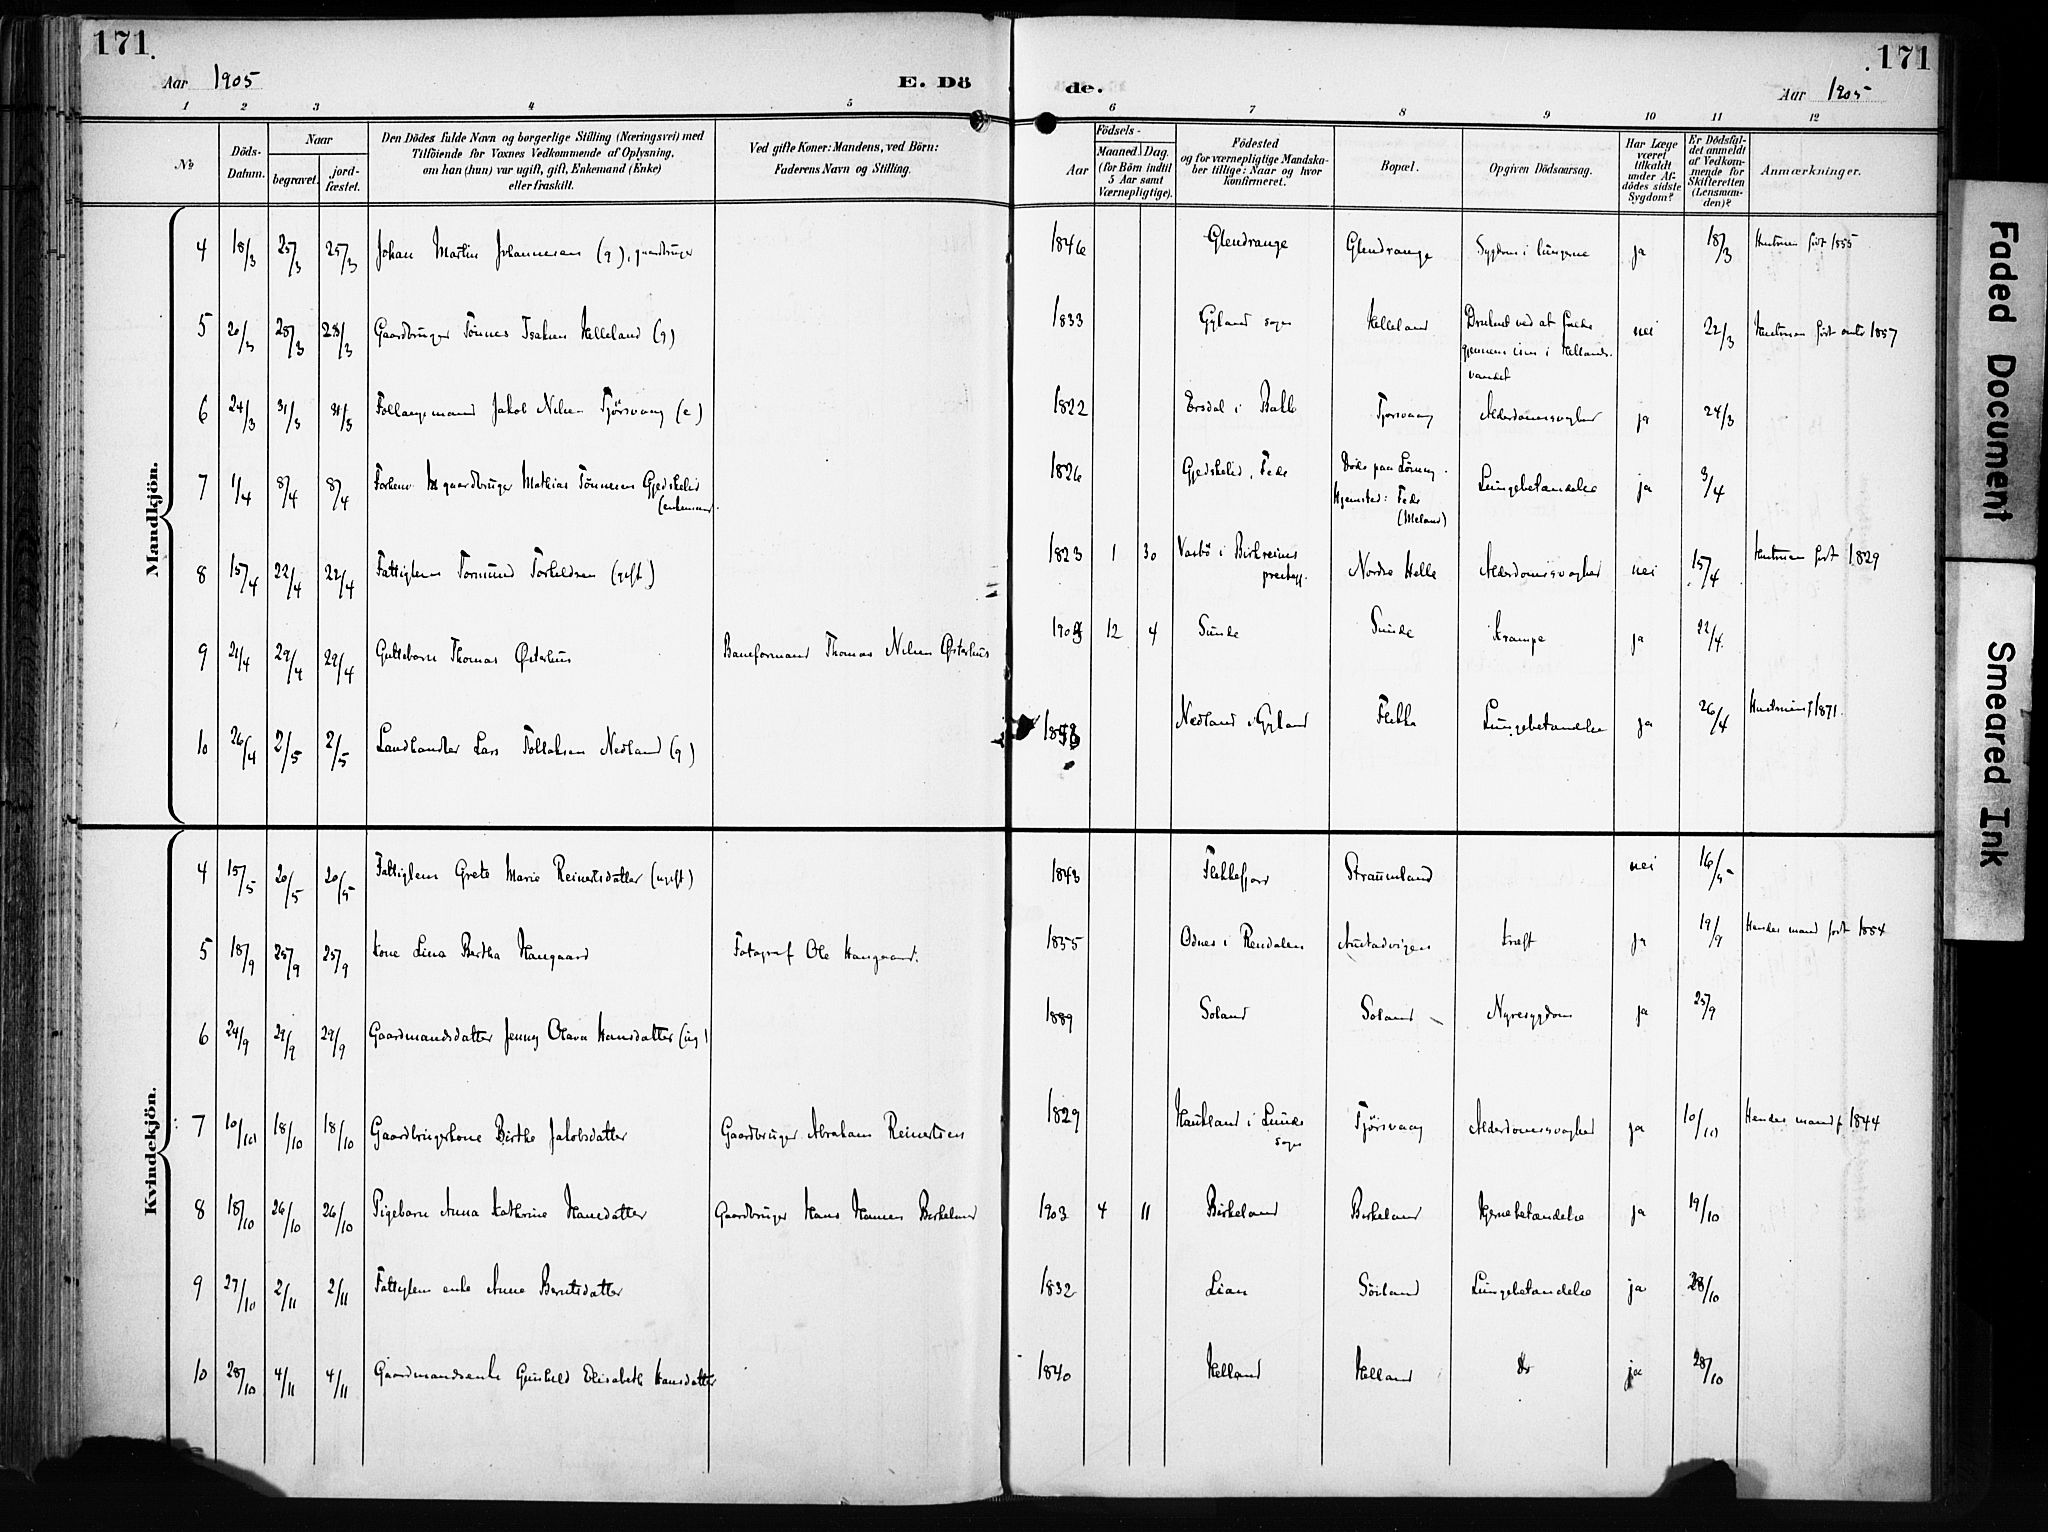 171.
171
Aar 1905
E. Dö
de.
Aar 1905
1 2 3 4 5 6 7 8 9 10 11 12
No
Döds-Datum.
Naar
begravet.
jordfæstet.
Den Dödes fulde Navn og borgerlige Stilling (Næringsvei) med
Tilföiende for Voxnes Vedkommende af Oplysning,
om han (hun) var ugift, gift, Enkemand (Enke)
eller fraskilt.
Ved gifte Koner: Mandens, ved Börn:
Faderens Navn og Stilling.
Födsels-
Aar
Maaned.
Dag.
(for Börn indtil
5 Aar samt
Værnepligtige).
Födested
og for værnepligtige Mandska-
ber tillige: Naar og hvor
konfirmeret.
Bopæl.
Opgiven Dödsaarsag.
Har Læge
været
tilkaldt
under Af-
dödes sidste
Sygdom?
Er Dödsfal-
det anmeldt
af Vedkom-
mende for
Skifteretten
(Lensman-
den)?
Anmærkninger.
Mandkjön.
4 18/3 25/3 25/3 Johan Martin Johannesen (g), gaardbruger 1846 Glendrange Glendrange Sygdom i lungerne ja 18/3 Hustruen født 1855
5 20/3 28/3 28/3 Gaardbruger Tønnes Isaksen Helleland (g) 1833 Gyland sogn Helleland Druknet ved at gjennem isen i Hellands-vandet nei 22/3 Hustruen født 1857
6 24/3 31/3 31/3 Jakob Nilsen Tjørsvaag (e) 1822 Ersdal i Bakke Tjorsvaag Alderdomssvaghed ja 24/3
7 1/4 8/4 8/4 Forhenv. gaardbruger Mathias Tønnesen Gjedskelid (enkemand) 1826 Gjedskelid, Fede Døde paa Hjemsted: Fede (Meland) Lungebetændelse ja 3/4
8 15/4 22/4 22/4 Fattiglem Tormund Torkeldsen (gift) 1823 1 30 i Birkreims prestegj. Nordre Helle Alderdomssvaghed nei 15/4 Hustruen født 1829
9 21/4 29/4 29/4 Guttebarn Thomas Østerhus Baneformand Thomas Nilsen Østerhus 1904 12 4 Sunde Sunde Krampe ja 22/4
10 26/4 2/5 2/5 Landhandler Lars Tollaksen Nedland (g) Nedland i Gyland Flikka Lungebetændelse ja 26/4 Hustruen f 1871.
Kvindekjön.
4 15/5 20/5 20/5 Fattiglem Grete Marie Reinertsdatter (ugift) 1843 Flekkefjord Straumland nei 16/5
5 18/9 25/9 25/9 Kone Lina Bertha Haugaard Fotograf Ole Haugaard. 1855 Odnes i Rendalen Austadvigen kræft ja 19/9 Hendes mand født 1854
6 24/9 29/9 29/9 Gaardmandsdatter Jenny Olava Hansdatter (ug) 1889 Soland Soland Nyresygdom ja 25/9
7 10/10 18/10 18/10 Gaardbrugerkone Birthe Jakobsdatter Gaardbruger Abraham Reinertsen 1829 Haukland i Lunde sogn Tjørsvaag Alderdomssvaghed ja 10/10 Hendes mand f 1844
8 18/10 26/10 26/10 Pigebarn Anna Kathrine Hansdatter Gaardbruger Hans Hansen Birkeland 1903 4 11 Birkeland Birkeland Hjernebetændelse ja 19/10
9 27/10 2/11 2/11 Fattiglem enke Anne Berntsdatter 1832 Lian Sörland Lungebetændelse ja 28/10
10 28/10 4/11 4/11 Gaardmandsenke Gunhild Elisabeth Hansdatter 1840 Helland Helland do ja 28/10
Faded Document
Smeared Ink